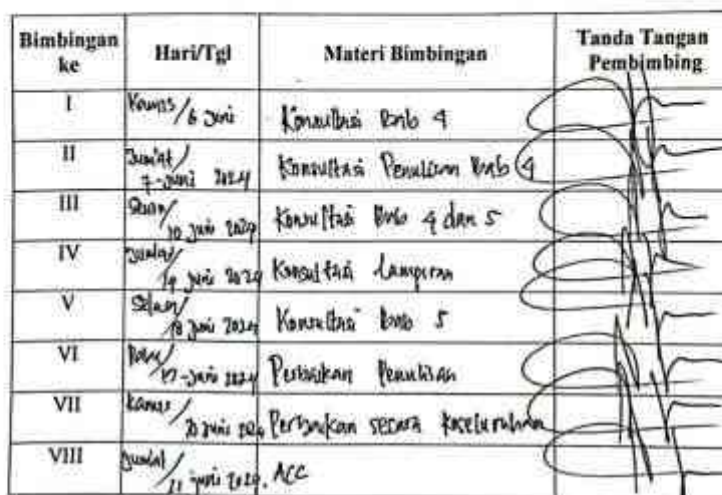 Bimbingan ke
Hari/Tgl
Materi Bimbingan
Tanda Tangan Pembimbing
I
Kamis / 6 Juni
Konsultasi Bab 4
II
Jum'at / 7-Juni 2024
Konsultasi Penulisan Bab 4
III
Senin / 10 Juni 2024
Konsultasi Bab 4 dan 5
IV
Jumat / 14 Juni 2024
Konsultasi Lampiran
V
Selasa / 18 Juni 2024
Konsultasi Bab 5
VI
Rabu / 19-Juni 2024
Perbaikan Penulisan
VII
Kamis / 20 Juni 2024
Perbaikan secara keseluruhan
VIII
Jumat / 21 Juni 2024.
ACC